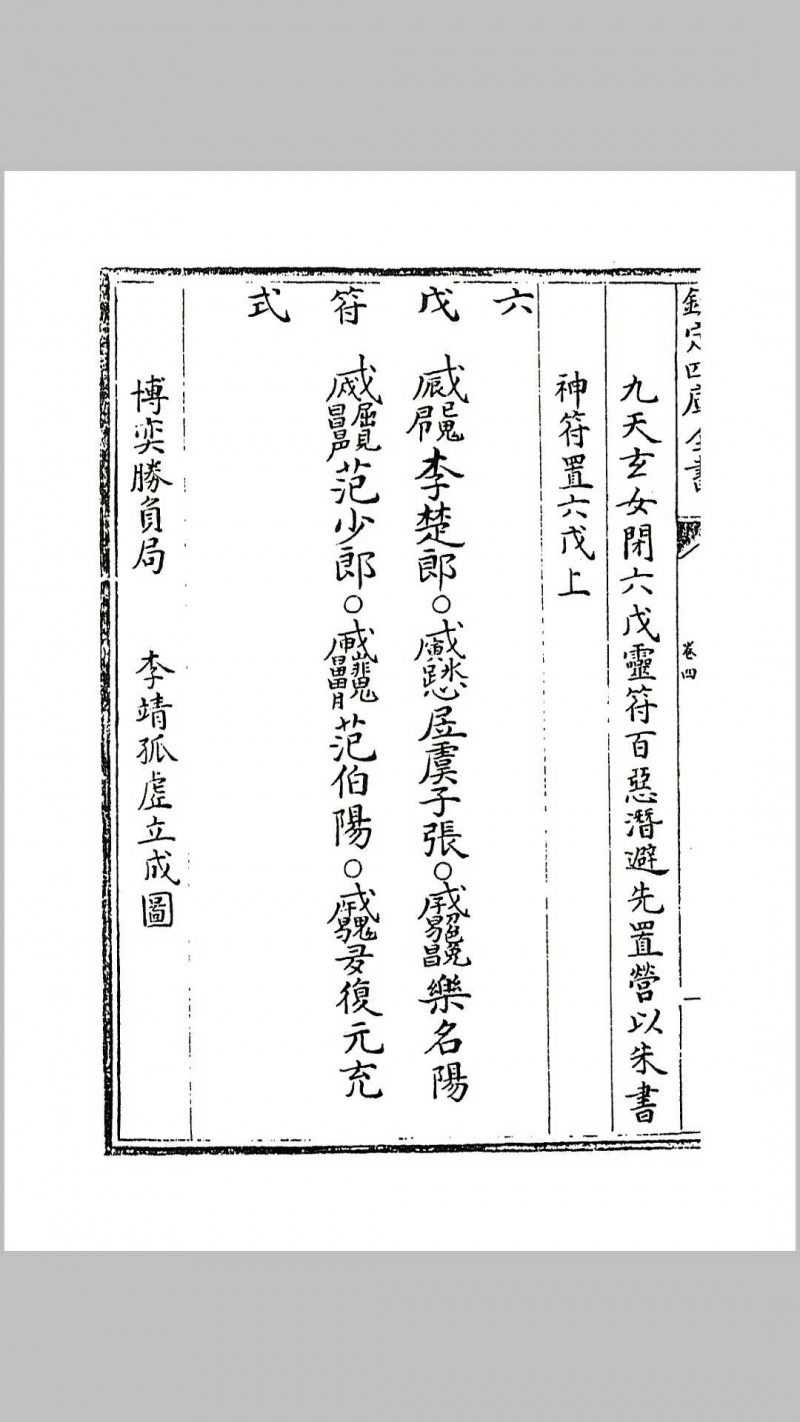 欽定四庫全書
卷四
一
九天玄女閉六戊靈符百惡潛避先置營以朱書
神符置六戊上
六戊符式
李楚郎○虞子張○樂名陽
范少郎○范伯陽○復元充
博奕勝負局 李靖孤虛立成圖